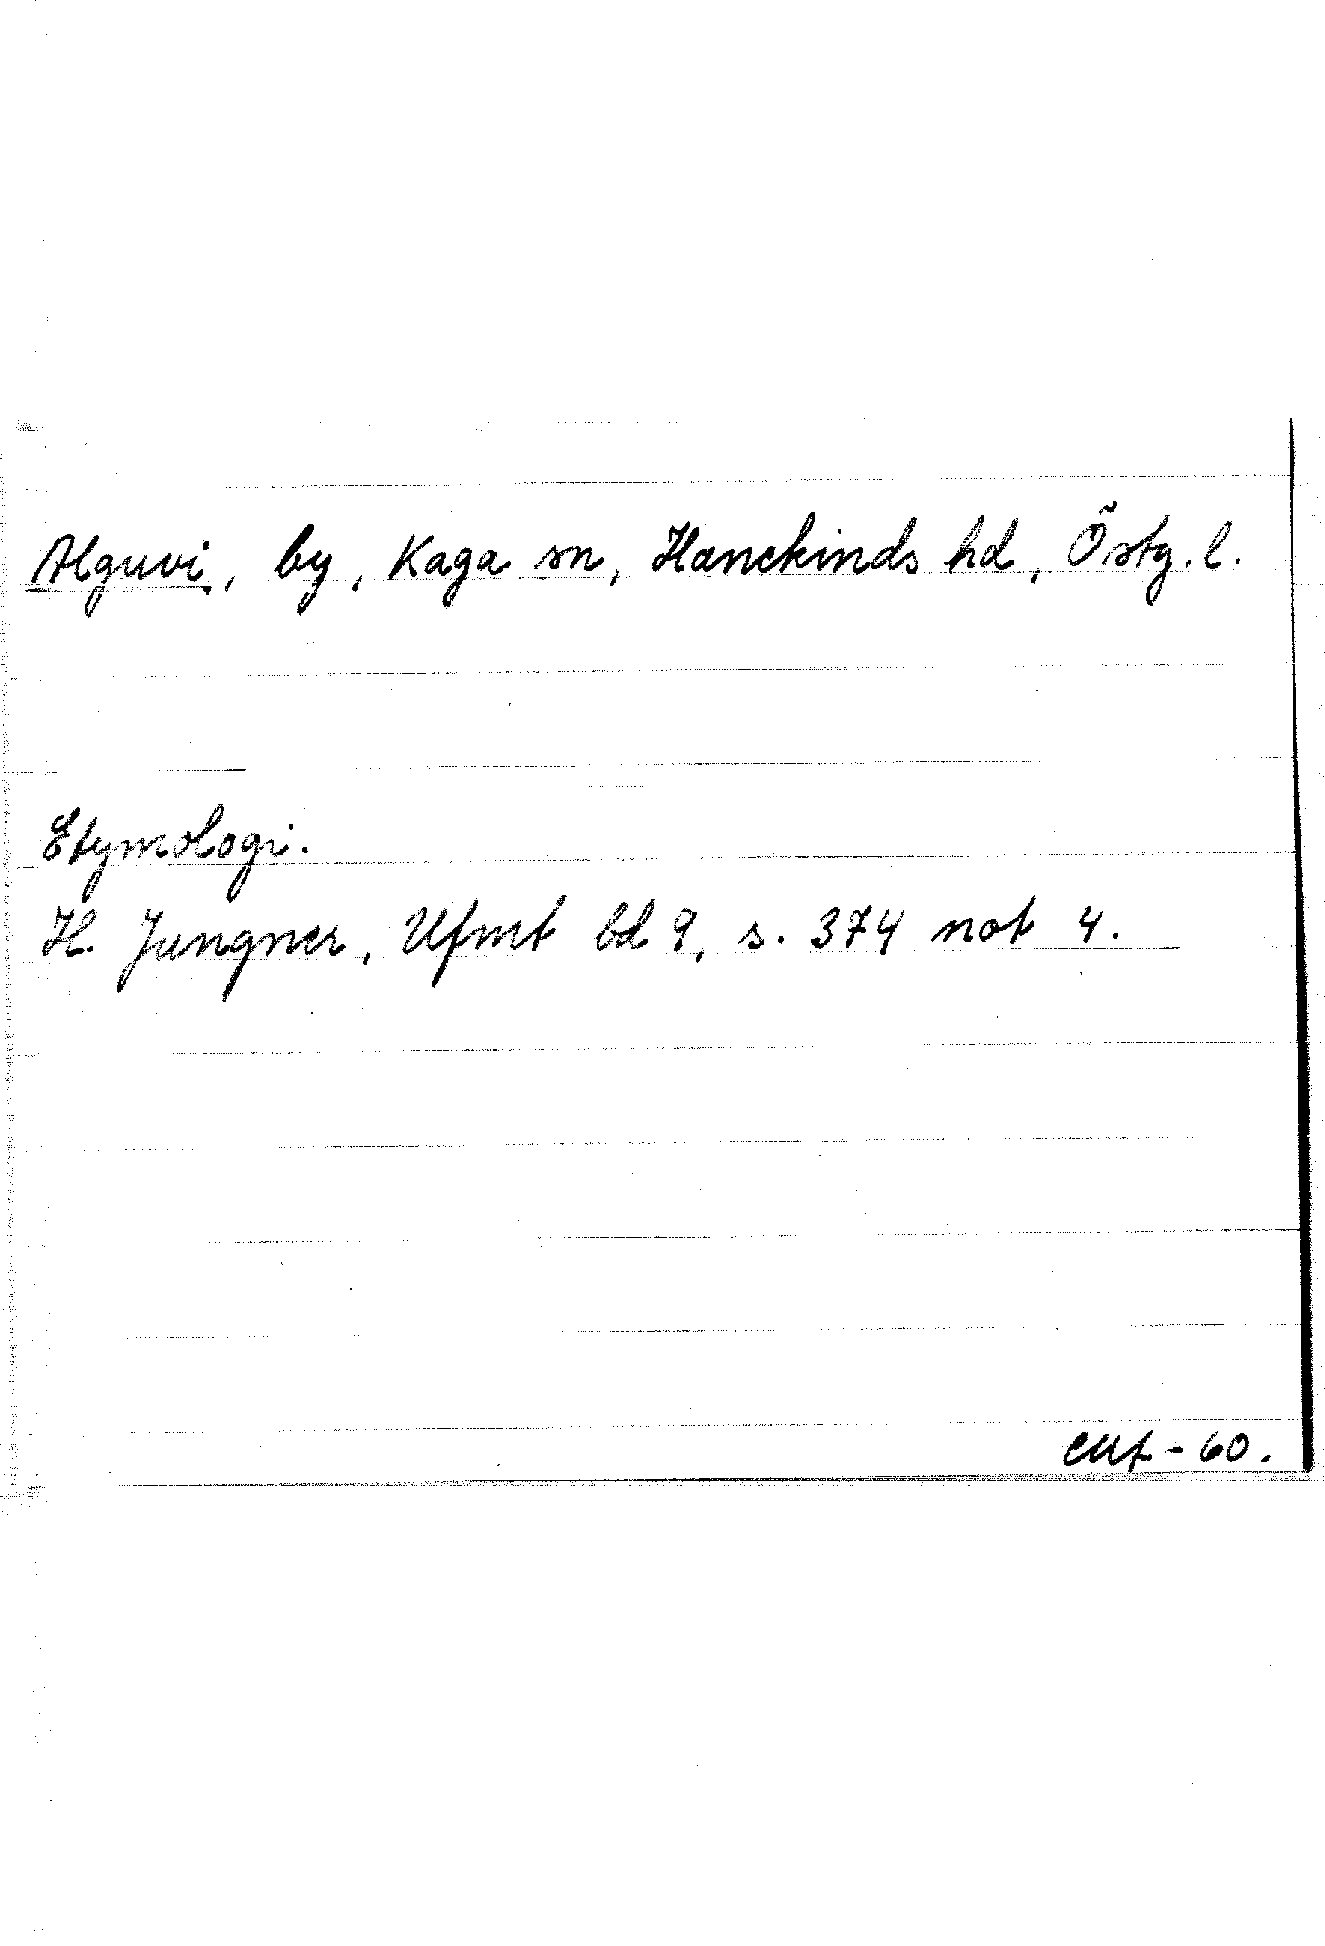 Alguvi, by, Kaga sn, Hanekinds hd, Östg. l.
Etymologi.
H. Jungner, Ufmt bd 9, s. 374 not 4.
- 60.